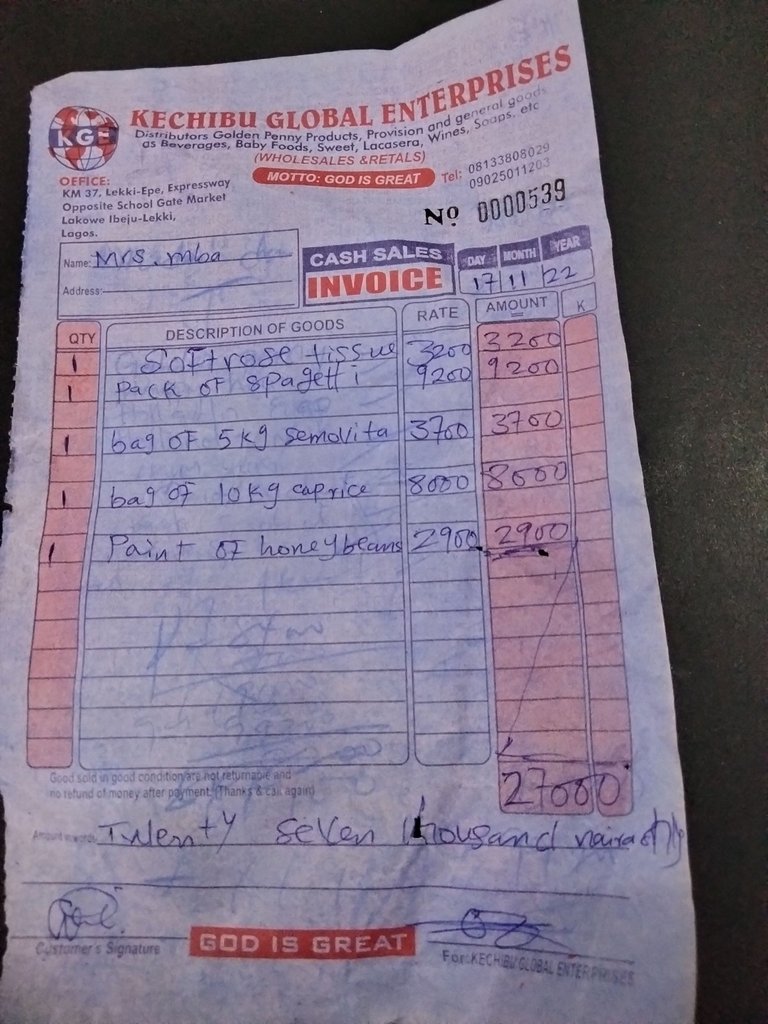 KGE
KECHIBU GLOBAL ENTERPRISES
Distributors Golden Penny Products, Provision and general goods
as Beverages, Baby Foods, Sweet, Lacasera, Wines, Soaps, etc
(WHOLESALES &RETALS)
MOTTO: GOD IS GREAT
Tel; 08133808029
09025011203
OFFICE:
KM 37, Lekki-Epe, Expressway
Opposite School Gate Market
Lakowe Ibeju-Lekki,
Lagos.
No 0000539
Name: Mrs. mba
Address:
CASH SALES
INVOICE
DAY MONTH YEAR
17 11 22
QTY DESCRIPTION OF GOODS RATE AMOUNT K
1 Softrose tissue 3200 3200
1 Pack of spagetti 9200 9200
1 bag of 5kg semovita 3700 3700
1 bag of 10kg caprice 8000 8000
1 Paint of honeybeans 2900 2900
27000
Good sold in good condition are not returnable and
no refund of money after payment. (Thanks & call again)
Amount in words Twenty seven thousand naira only
Customer's Signature
GOD IS GREAT
For: KECHIBU GLOBAL ENTERPRISES